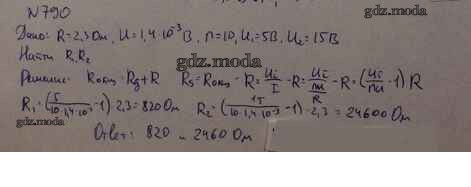 N790
gdz.moda
Дано: R=2,3 Ом, U=1,4·10⁻³В, n=10, U₁=5В, U₂=15В
gdz.moda
Найти R₁R₂
Решение: Rобщ=Rg+R Rg=Rобщ-R=Ui/I-R=Ui/(nu/R)-R=(Ui/nu-1)R
R₁=(5/(10·1,4·10⁻³)-1)·2,3=820 Ом R₂=(15/(10·1,4·10⁻³)-1)·2,3=24600 Ом
gdz.moda
Ответ: 820 и 2460 Ом